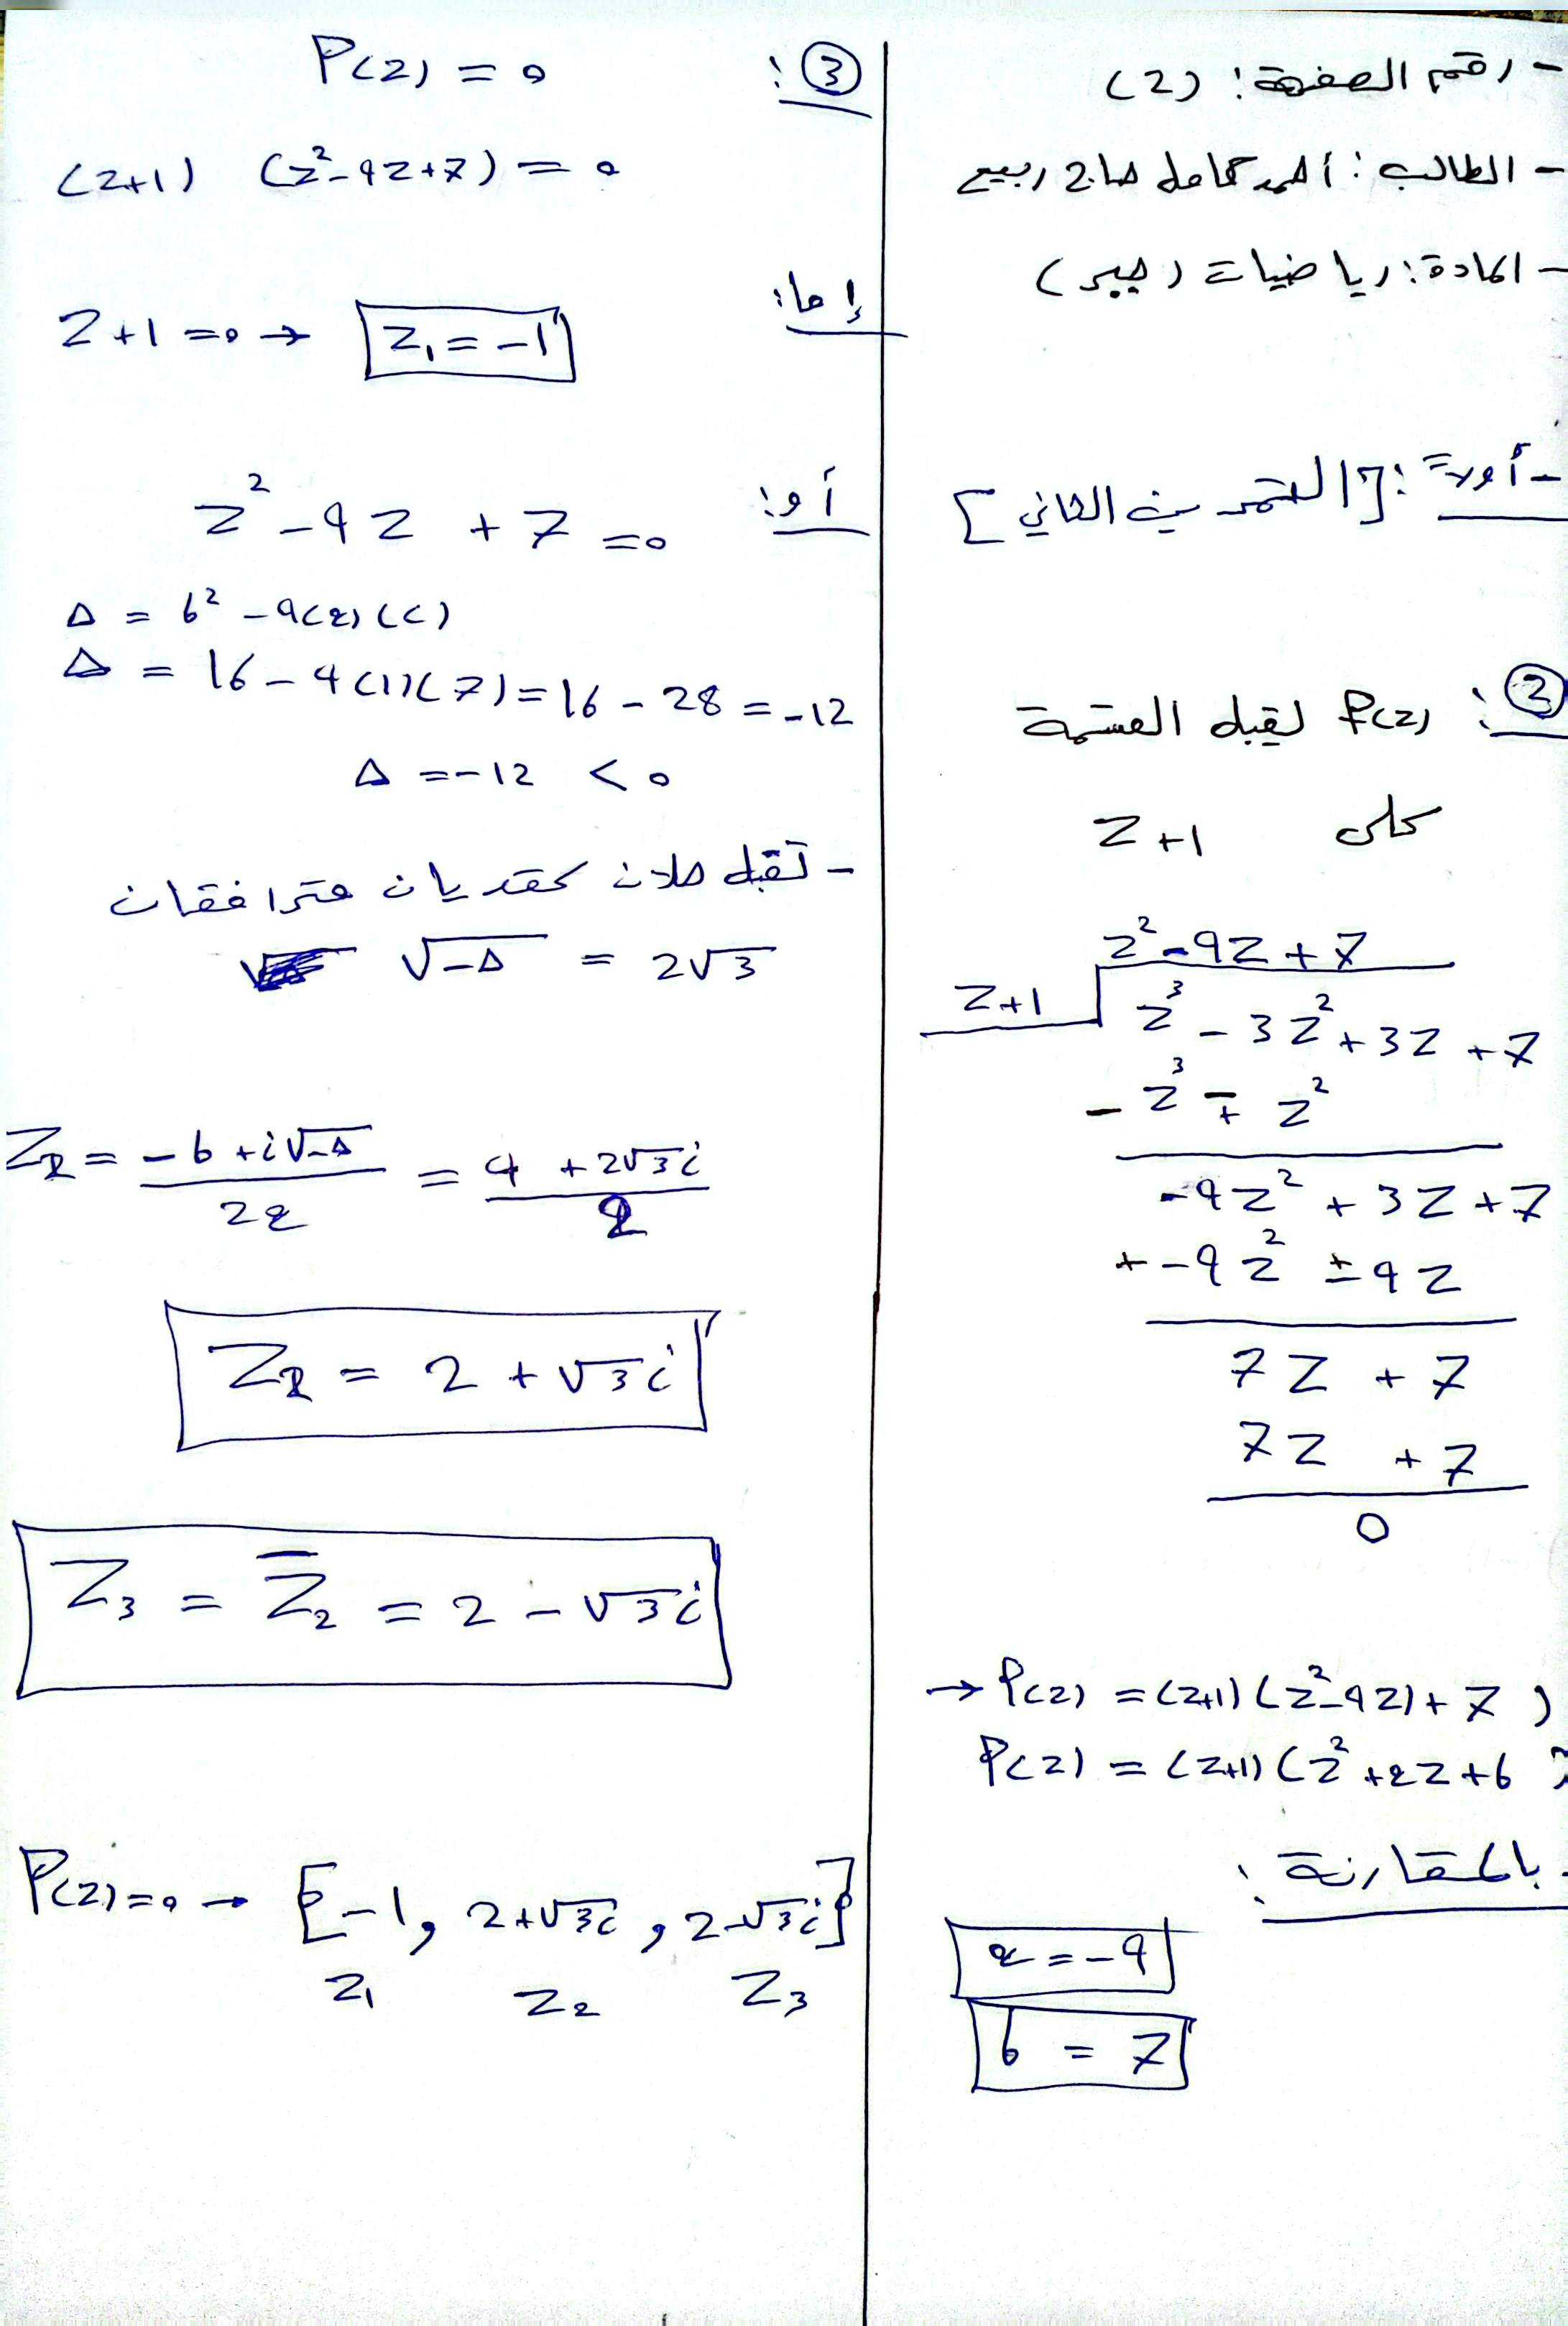 - رقم الصفحة: (2)
- الطالب: أحمد كامل صالح ربيع
- المادة: رياضيات (جبر)
- أولاً: [التمرين الثاني]
②: P(z) تقبل القسمة
على z+1
z² - 4z + 7
z+1 z³ - 3z² + 3z + 7
- z³ ∓ z²
-4z² + 3z + 7
+ -4z² ± 4z
7z + 7
7z + 7
0
→ P(z) = (z+1)(z²-4z)+7)
P(z) = (z+1)(z²+az+b)
بالمقارنة:
a = -4
b = 7
③: P(z) = 0
(z+1) (z²-4z+7) = 0
إما: z+1 = 0 → z₁ = -1
أو: z² - 4z + 7 = 0
Δ = b² - 4(a)(c)
Δ = 16 - 4(1)(7) = 16 - 28 = -12
Δ = -12 < 0
- تقبل حلان عقديان مترافقان
√-Δ = 2√3
z₂ = -b + i√-Δ / 2a = 4 + 2√3 i / 2
z₂ = 2 + √3 i
z₃ = z̄₂ = 2 - √3 i
P(z) = 0 → [-1, 2+√3i, 2-√3i]
z₁ z₂ z₃